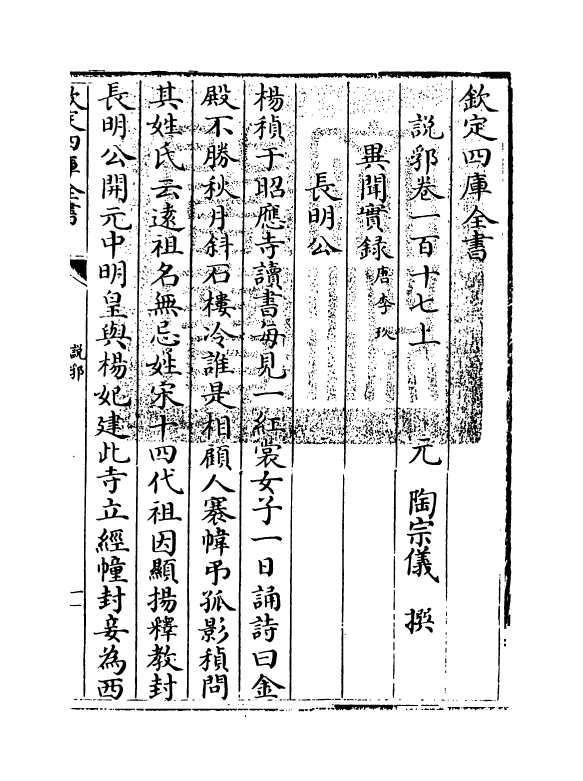 欽定四庫全書
說郛卷一百十七上 元 陶宗儀 撰
異聞實録 唐李玫
長明公
楊稹于昭應寺讀書每見一紅裳女子一日誦詩曰金
殿不勝秋月斜石樓冷誰是相顧人褰幃弔孤影稹問
其姓氏云遠祖名無忌姓宋十四代祖因顯揚釋教封
長明公開元中明皇與楊妃建此寺立經幢封妾為西
欽定四庫全書
說郛
一